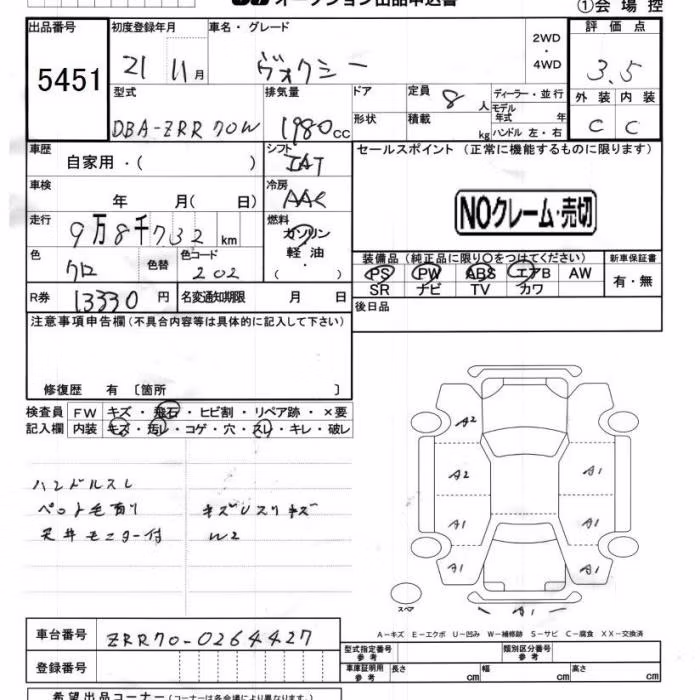 オークション出品申込書
①会場控
出品番号 初度登録年月 車名・グレード 2WD・4WD 評価点
5451 21 11月 ヴォクシー 3.5
型式 排気量 ドア 定員 8人 ディーラー・並行 外装 内装
DBA-ZRR70W 1980cc 形状 積載 kg モデル年式 年 ハンドル 左・右 C C
車歴 自家用・( ) シフト IAT セールスポイント (正常に機能するものに限ります)
車検 年 月( 日) 冷房 AAC
NOクレーム・売切
走行 9万8千732km 燃料 ガソリン・軽油・( )
色 クロ 色替 色コード 202
装備品(純正品に限り〇をつけてください) 新車保証書
PS PW ABS エアB AW 有・無
SR ナビ TV カワ
R券 13330円 名変通知期限 月 日 後日品
注意事項申告欄(不具合内容等は具体的に記入して下さい)
修復歴 有 〔箇所 〕
検査員 FW キズ・飛石・ヒビ割・リペア跡・×要
記入欄 内装 キズ・汚レ・コゲ・穴・スレ・キレ・破レ
A2
A2 A1
A1 A1
A1 A1
A1
スペア
ハンドルスレ
ペット毛有り キズUスリキズ
天井モニター付 W2
A-キズ E-エクボ U-凹み W-補修跡 S-サビ C-腐食 XX-交換済
車台番号 ZRR70-0264427
型式指定番号 参考 類別区分番号 参考
登録番号
車庫証明用 参考 長さ cm 幅 cm 高さ cm
希望出品コーナー(コーナーは各会場により異なります。)